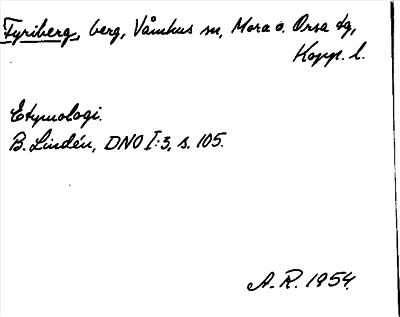 Fyriberg, berg, Våmhus sn, Mora o. Orsa tg,
Kopp. l.
Etymologi.
B. Lindén, DNO I:3, s. 105.
A. R. 1954.